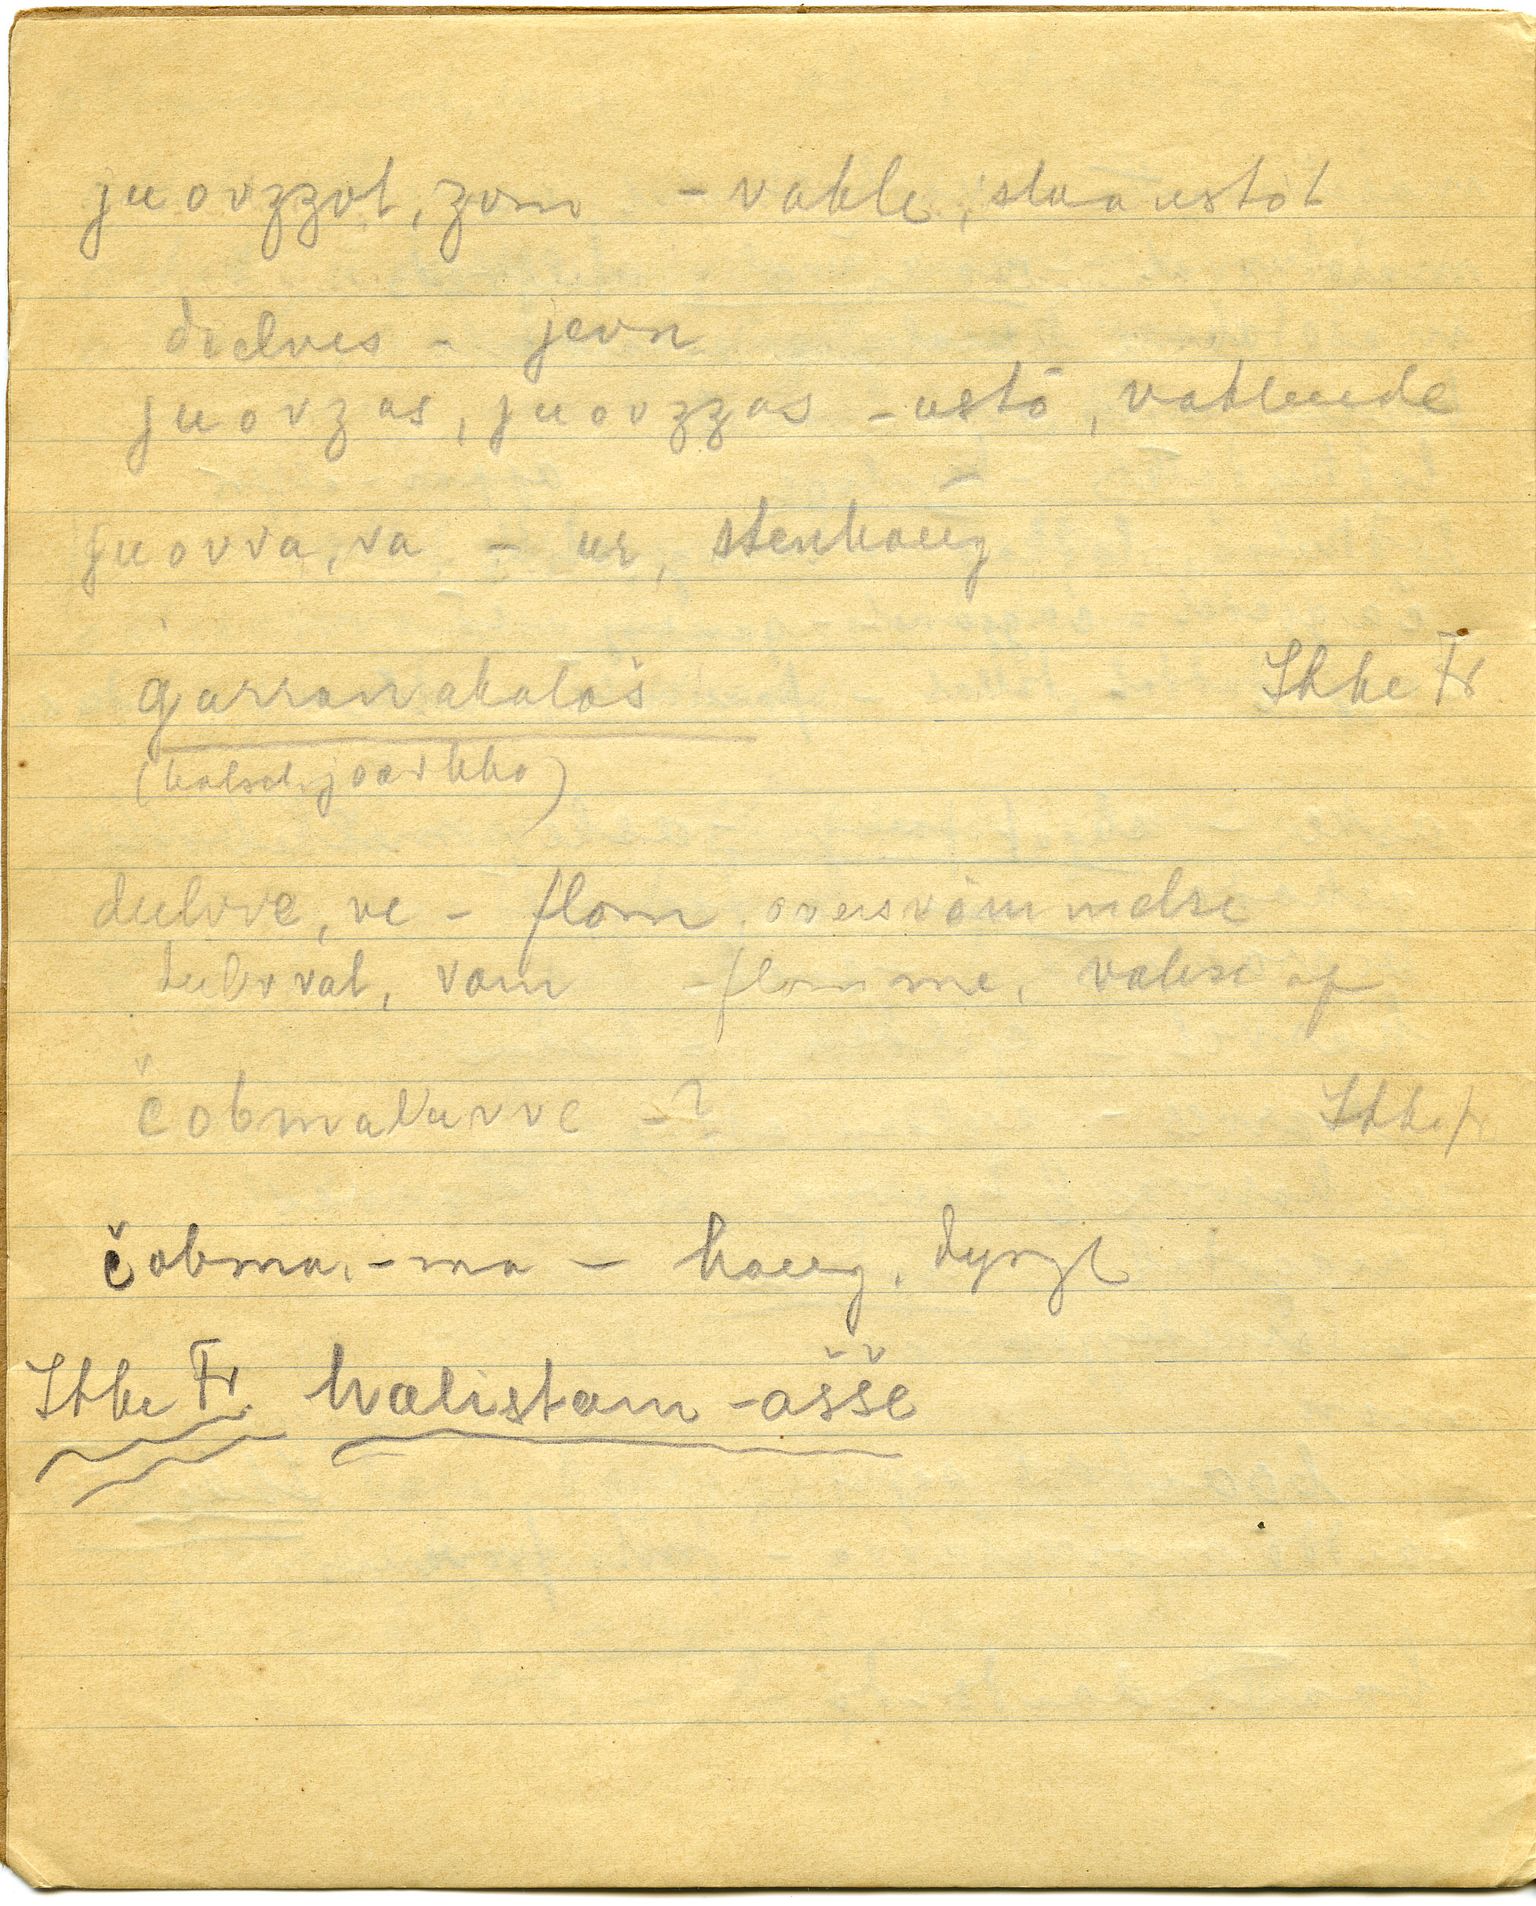 juovzzot, zom - vakle, staa ustøt
dœlves - jevn
juovzas, juovzzas - ustö, vaklende
juovva, va - ur, stenhaug
garranakalaš Ikke Fr
(kalsat, joavkko)
dulvve, ve - flom, oversvömmelse
dulvvat, vam - flomme, vakse op
čobmaluvve - ? Ikke Fr
čobma, -ma - haug, dynge
Ikke Fr. hvalistam - ašše